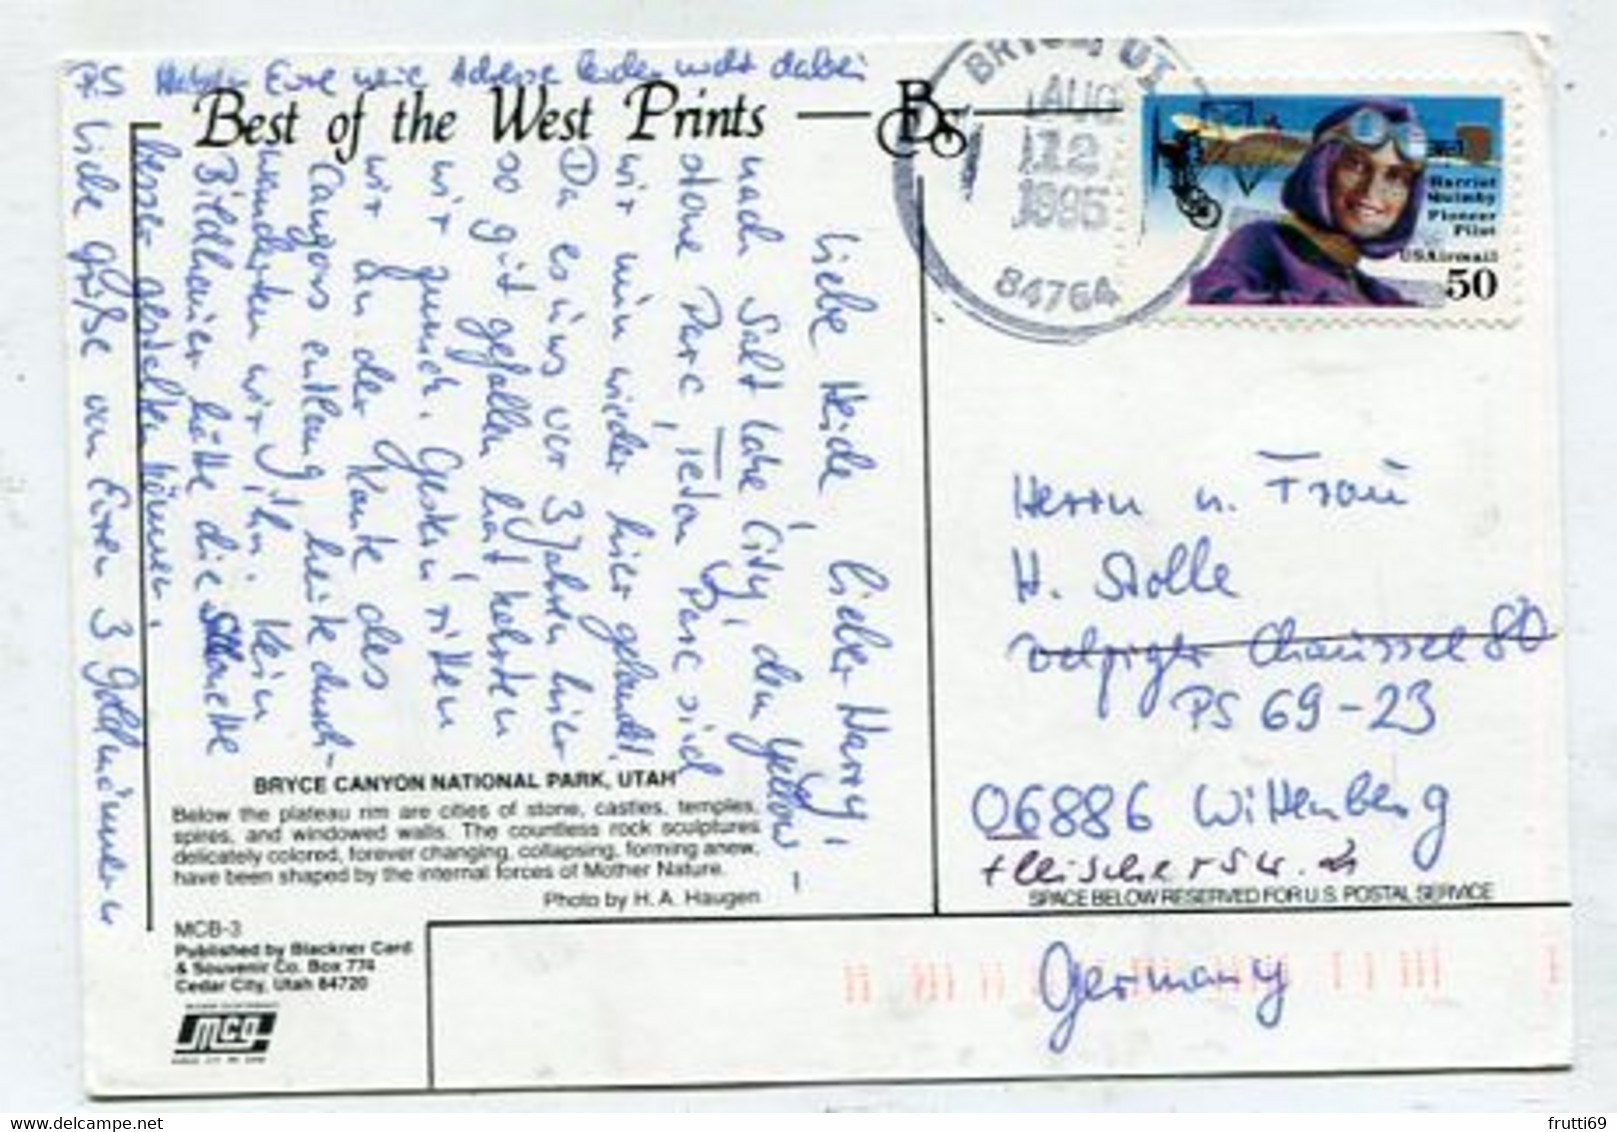 PS Eure neue Adresse leider nicht dabei
Best of the West Prints
Liebe Heide, lieber Harry,
nach Salt Lake City, den Yellow-
stone Parc, Teton Parc sind
wir nun wieder hier gelandet.
Da es uns vor 3 Jahren hier
so gut gefallen hat kehrten
wir zurück. Gestern ritten
wir an der Kante des
Canyons entlang, heute durch-
wanderten wir ihn. Kein
Bildhauer hätte die Skelette
besser gestalten können.
Liebe Grüße von Euren 3
BRYCE CANYON NATIONAL PARK, UTAH
Below the plateau rim are cities of stone, castles, temples,
spires, and windowed walls. The countless rock sculptures
delicately colored, forever changing, collapsing, forming anew,
have been shaped by the internal forces of Mother Nature.
Photo by H. A. Haugen
MCB-3
Published by Blackner Card
& Souvenir Co. Box 774
Cedar City, Utah 84720
mcg
BRYCE, UT
AUG
12
1995
84764
Harriet
Quimby
Pioneer
Pilot
USAirmail
50
Herrn u. Frau
H. Stolle
Chaussee 80
PS 69-23
06886 Wittenberg
Fleischerstr.
SPACE BELOW RESERVED FOR U.S. POSTAL SERVICE
Germany
frutti69